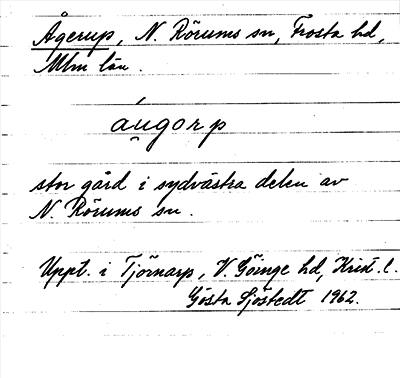 Ågerup, N. Rörums sn, Frosta hd,
Mlm län.
áu̯gorp
stor gård i sydvästra delen av
N. Rörums sn.
Uppt. i Tjörnarp, V. Göinge hd, Krist. l.
Gösta Sjöstedt 1962.